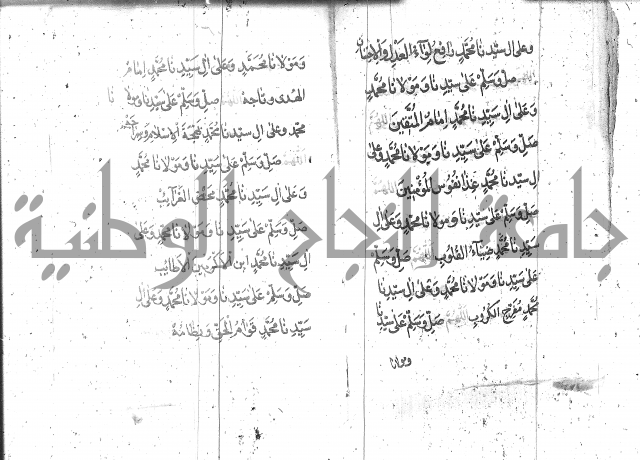 وعلى ال سيدنا محمد رافع لوآء العدل والاحسان
اللهم صل وسلم على سيدنا ومولانا محمد
وعلى ال سيدنا محمد امام المتقين اللهم
صل وسلم على سيدنا ومولانا محمد وعلى
ال سيدنا محمد غذا نفوس المؤمنين اللهم
صل وسلم على سيدنا ومولانا محمد وعلى ال
سيدنا محمد ضيآء القلوب اللهم صل وسلم
على سيدنا ومولانا محمد وعلى ال سيدنا
محمد مفرج الكروب اللهم صل وسلم على سيدنا
ومولانا
ومولانا محمد وعلى ال سيدنا محمد امام
الهدى وتاجه اللهم صل وسلم على سيدنا ومولانا
محمد وعلى ال سيدنا محمد بهجة الاسلام
اللهم صل وسلم على سيدنا ومولانا محمد
وعلى ال سيدنا محمد القرآيب
صل وسلم على سيدنا ومولانا محمد وعلى
ال سيدنا محمد ابن الاطائب
صل وسلم على سيدنا ومولانا محمد وعلى ال
سيدنا محمد قوام الحق ونظامه
جامعة النجاح الوطنية